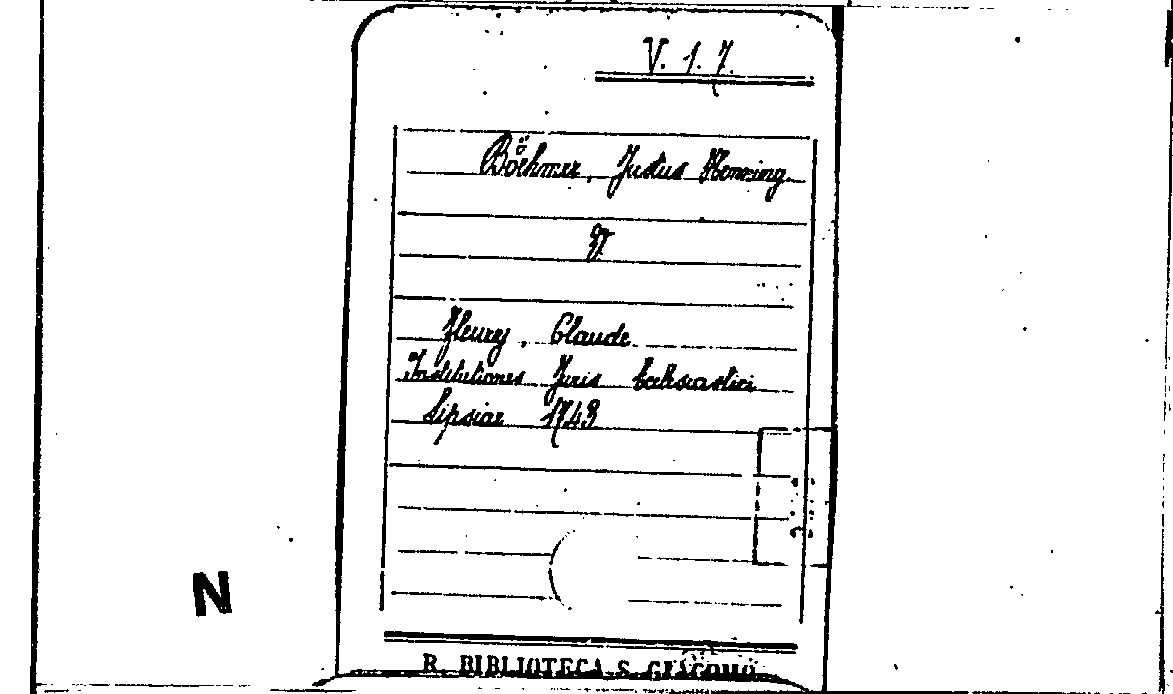 V. 1. 7.
Böhmer, Justus Henning
V.
Fleury, Claude
Institutiones Juris Ecclesiastici
Lipsiae 1743
N
R. BIBLIOTECA S. GIACOMO